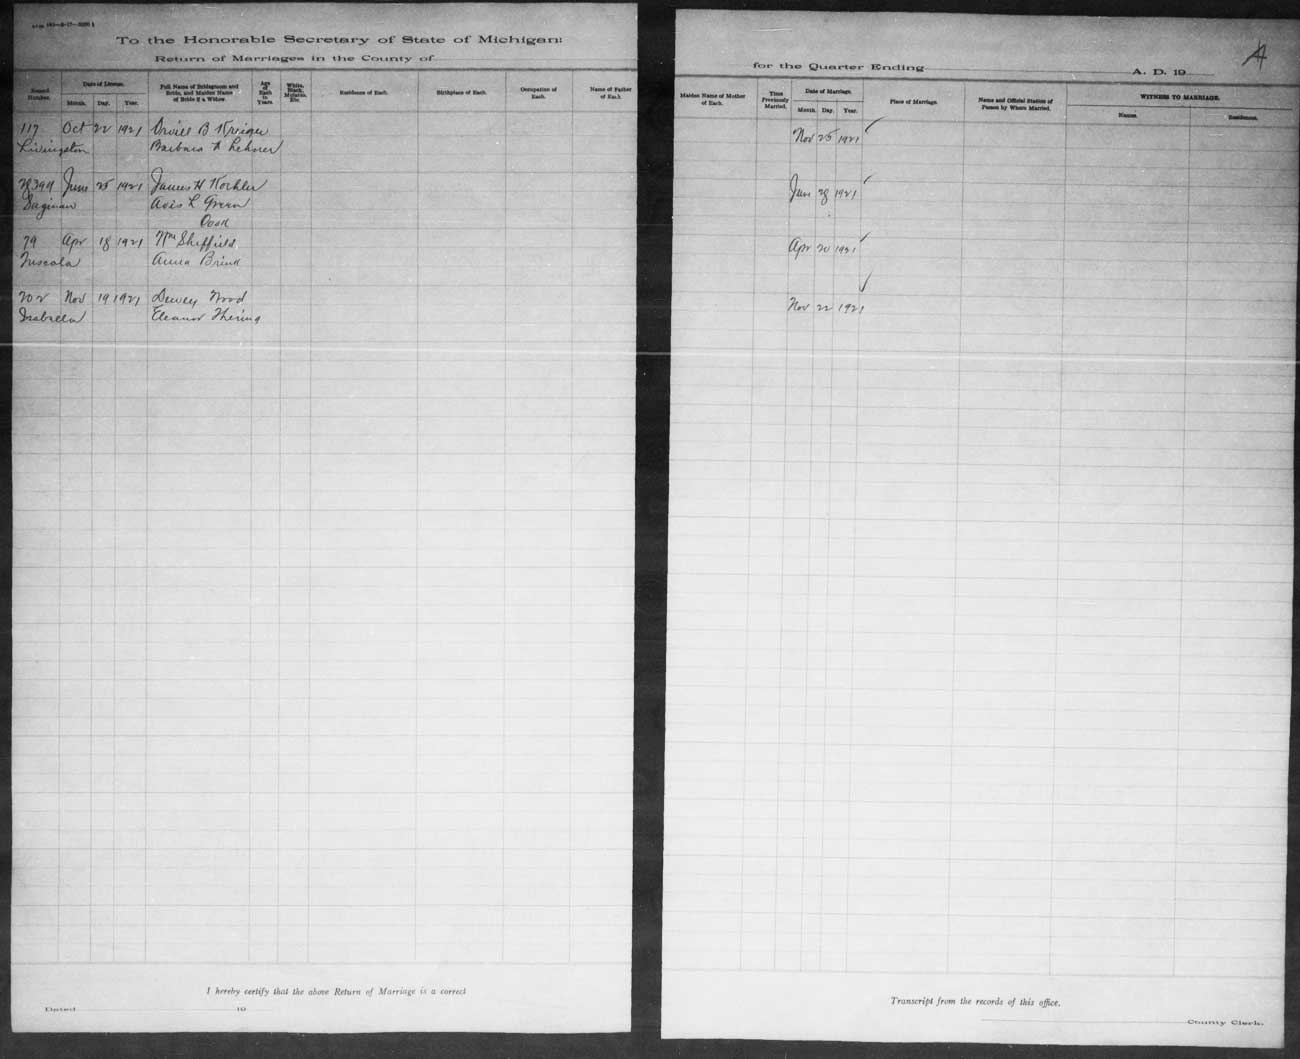 To the Honorable Secretary of State of Michigan:
Return of Marriages in the County of
for the Quarter Ending
A. D. 19
A
Record Number.
Date of License.
Month. Day. Year.
Full Name of Bridegroom and Bride, and Maiden Name of Bride if a Widow.
Age of Each in Years.
White, Black, Mulatto, Etc.
Residence of Each.
Birthplace of Each.
Occupation of Each.
Name of Father of Each.
Maiden Name of Mother of Each.
Time Previously Married.
Date of Marriage.
Month. Day. Year.
Place of Marriage.
Name and Official Station of Person by Whom Married.
WITNESS TO MARRIAGE.
Names.
Residences.
117 Oct 22 1921 Orville B Kreiger Nov 25 1921
Livingston Barbara A Lehner
28394 June 25 1921 James H Koehler June 28 1921
Saginaw Avis L Green
Cook
79 Apr 18 1921 Wm Sheffield Apr 20 1921
Tuscola Anna Brink
202 Nov 19 1921 Dewey Wood Nov 22 1921
Isabella Eleanor Thering
I hereby certify that the above Return of Marriage is a correct
Transcript from the records of this office.
Dated 19
County Clerk.